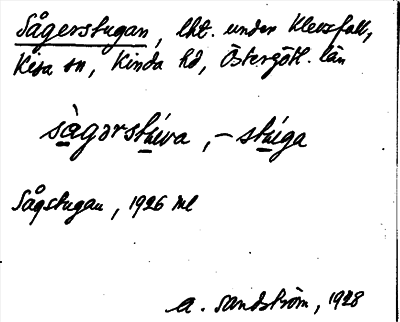 Sågerstugan, lht. under Klevsfall,
Kisa sn, Kinda hd, Östergötl. län
sàgərstúva, – stúga
Sågstugan, 1926 ml
A. Sandström, 1928